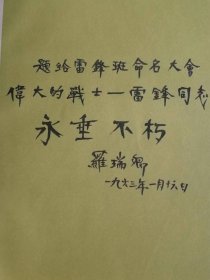 题给雷锋班命名大會
偉大的戰士—雷锋同志
永垂不朽
羅瑞卿
一九六三年一月十八日